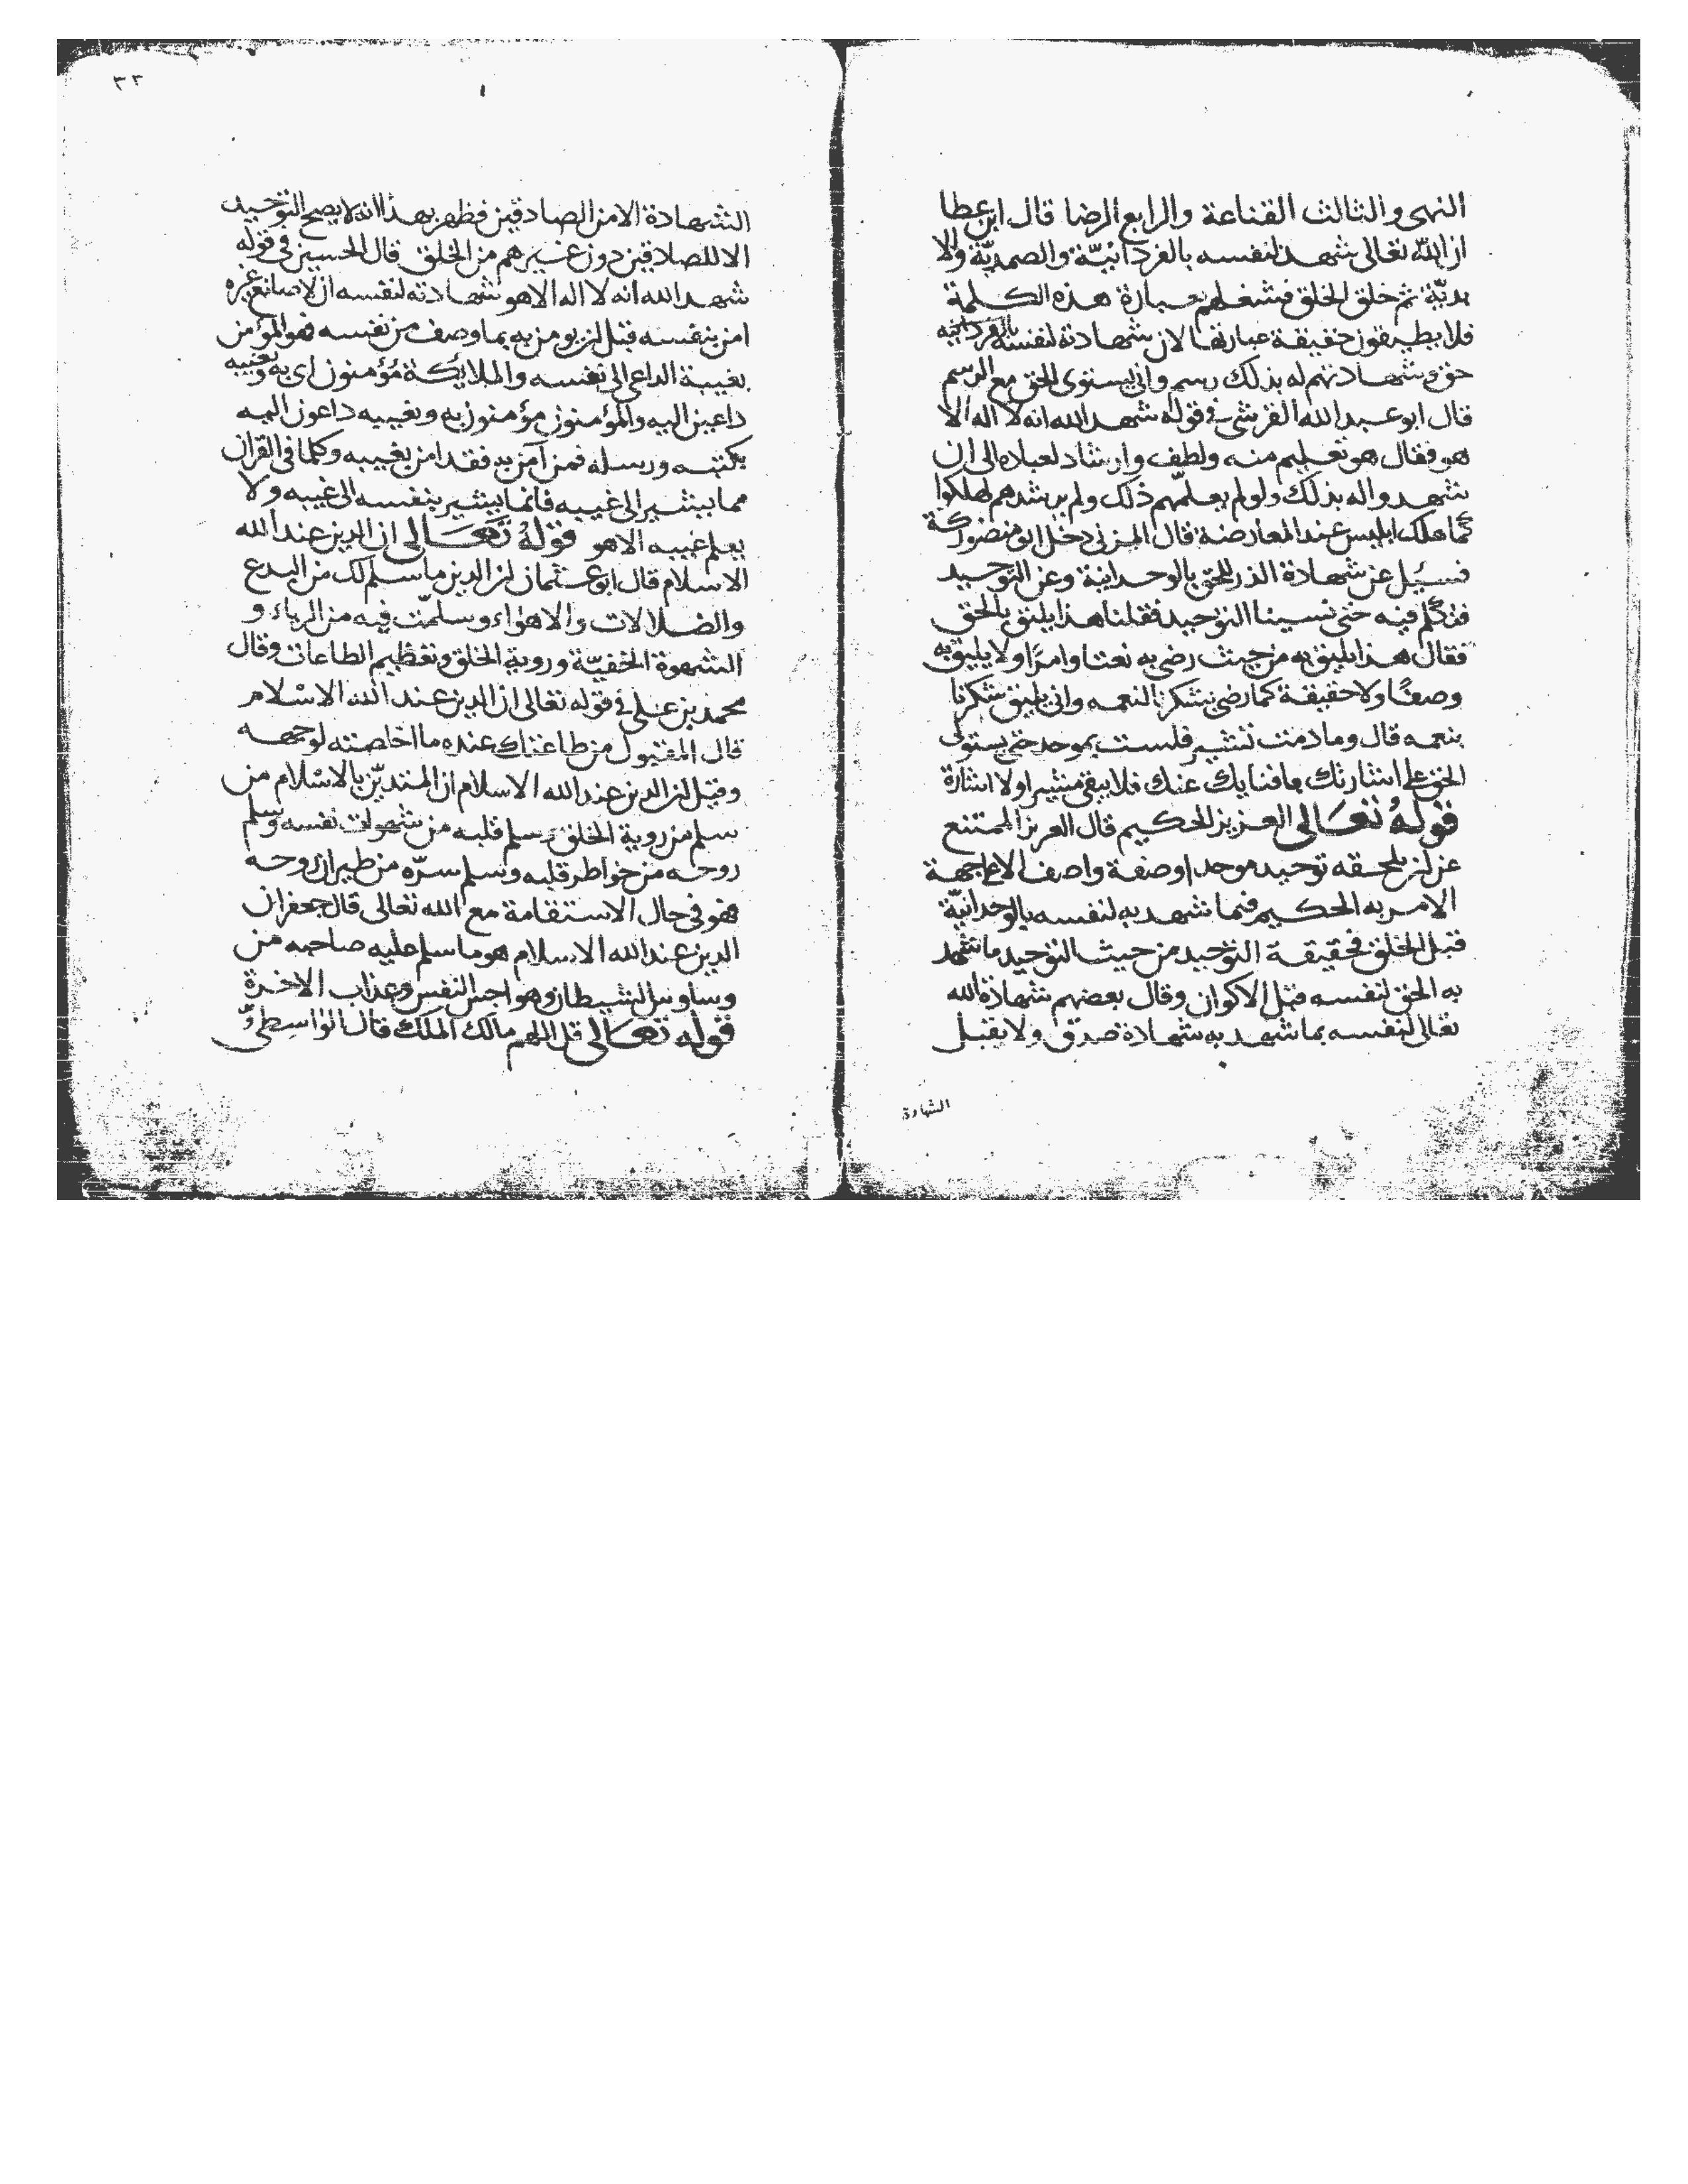 النهى والثالث القناعة والرابع الرضا قال ابن عطا
ان الله تعالى شهد لنفسه بالفردانيّة والصمديّة والا
بديّة ثم خلق الخلق فشغلهم بعبارة هذه الكلمة
فلا يطيقون حقيقة عبارتها لان شهادته لنفسه بالفردانيه
حق وشهادتهم له بذلك رسم وانى يستوى الحق مع الرسم
قال ابو عبد الله القرشى فى قوله شهد الله انه لا اله الا
هو فقال هو تعليم منه ولطف وارشاد لعباده الى ان
شهدوا له بذلك ولو لم يعلّمهم ذلك ولم يرشدهم لهلكوا
كما هلك ابليس عند المعارضة قال المزنى دخل ابو منصور مكة
فسئل عن شهادة الذر للحق بالوحدانية وعن التوحيد
فتكلم فيه حتى نسينا التوحيد فقلنا هذا يليق بالحق
فقال هذا يليق به من حيث رضى به نعتا وامرًا ولا يليق به
وصفًا ولا حقيقة كما رضى بشكرنا لنعمه وانى يليق شكرنا
بنعمه قال وما دمت تشير فلست بموحد حتى يستولى
الحق على اشارتك بافنايك عنك فلا يبقى مشيرا ولا اشارة
قوله تعالى العزيز الحكيم قال العزيز الممتنع
عن ان يلحقه توحيد موحد او صفة واصف الا على جهة
الامر به الحكيم فيما شهد به لنفسه بالوحدانيّة
قبل الخلق فحقيقة التوحيد من حيث التوحيد ما شهد
به الحق لنفسه قبل الاكوان وقال بعضهم شهادة الله
تعالى لنفسه بما شهد به شهادة صدق ولا يقبل
الشهادة
٣٣
الشهادة الا من الصادقين فظهر بهذا انه لا يصح التوحيد
الا للصادقين دون غيرهم من الخلق قال الحسين فى قوله
شهد الله انه لا اله الا هو شهادته لنفسه ان لا صانع غيره
امن بنفسه قبل ان يومن به بما وصف من نفسه فهو المؤمن
بغيبه الداعى الى نفسه والملايكة مؤمنون اى به وبغيبه
داعين اليه والمؤمنون مؤمنون به وبغيبه داعون اليه
بكتبه ورسله فمن آمن به فقد امن بغيبه وكلما فى القران
مما يشير الى غيبه فانما يشير بنفسه الى غيبه ولا
يعلم غيبه الا هو قوله تعالى ان الدين عند الله
الاسلام قال ابو عثمان ان الدين ما سلم لك من البدع
والضلالات والاهواء وسلمت فيه من الرياء و
الشهوة الخفيّة وروية الخلق وتعظيم الطاعات وقال
محمد بن على فى قوله تعالى ان الدين عند الله الاسلام
قال المقبول من طاعتك عنده ما اخلصته لوجهه
وقيل ان الدين عند الله الاسلام ان المتديّن بالاسلام من
سلم من روية الخلق وسلم قلبه من شهوات نفسه وسلم
روحه من خواطر قلبه وسلم سرّه من طيران روحه
فهو فى حال الاستقامة مع الله تعالى قال جعفر ان
الدين عند الله الاسلام هو ما سلم عليه صاحبه من
وساوس الشيطان وهواجس النفس وعذاب الاخرة
قوله تعالى قل اللهم مالك الملك قال الواسطى